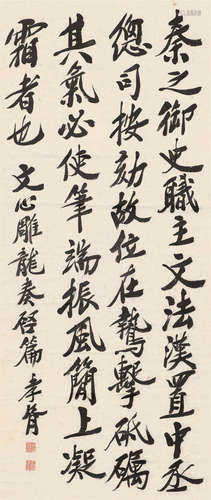 秦之御史職主文法漢置中丞
總司按劾故位在鷙擊砥礪
其氣必使筆端振風簡上凝
霜者也
文心雕龍奏啓篇 孝胥